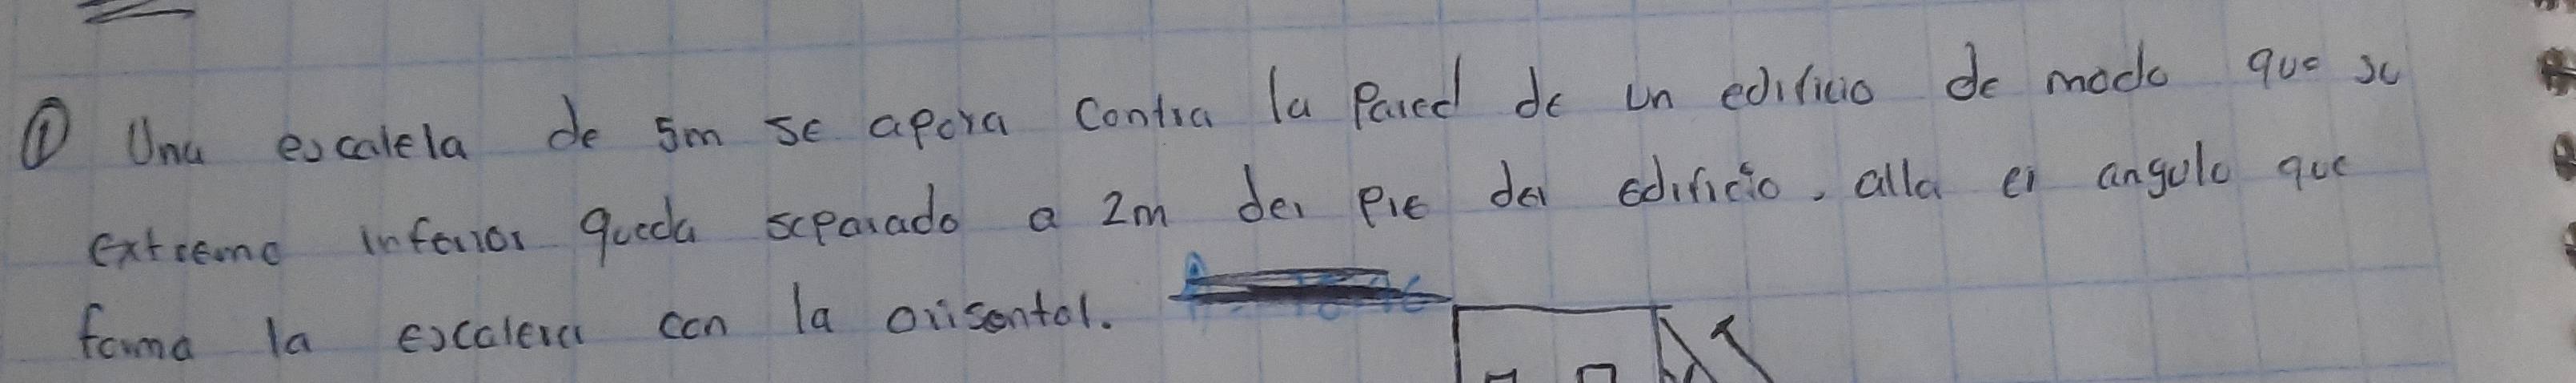 ① Una escalela de 5m se apoya contra la Pared de un edificio de modo que su
extremo inferior queda separado a 2m del pie del edificio, alla el angulo que
forma la escalera con la orisontal.